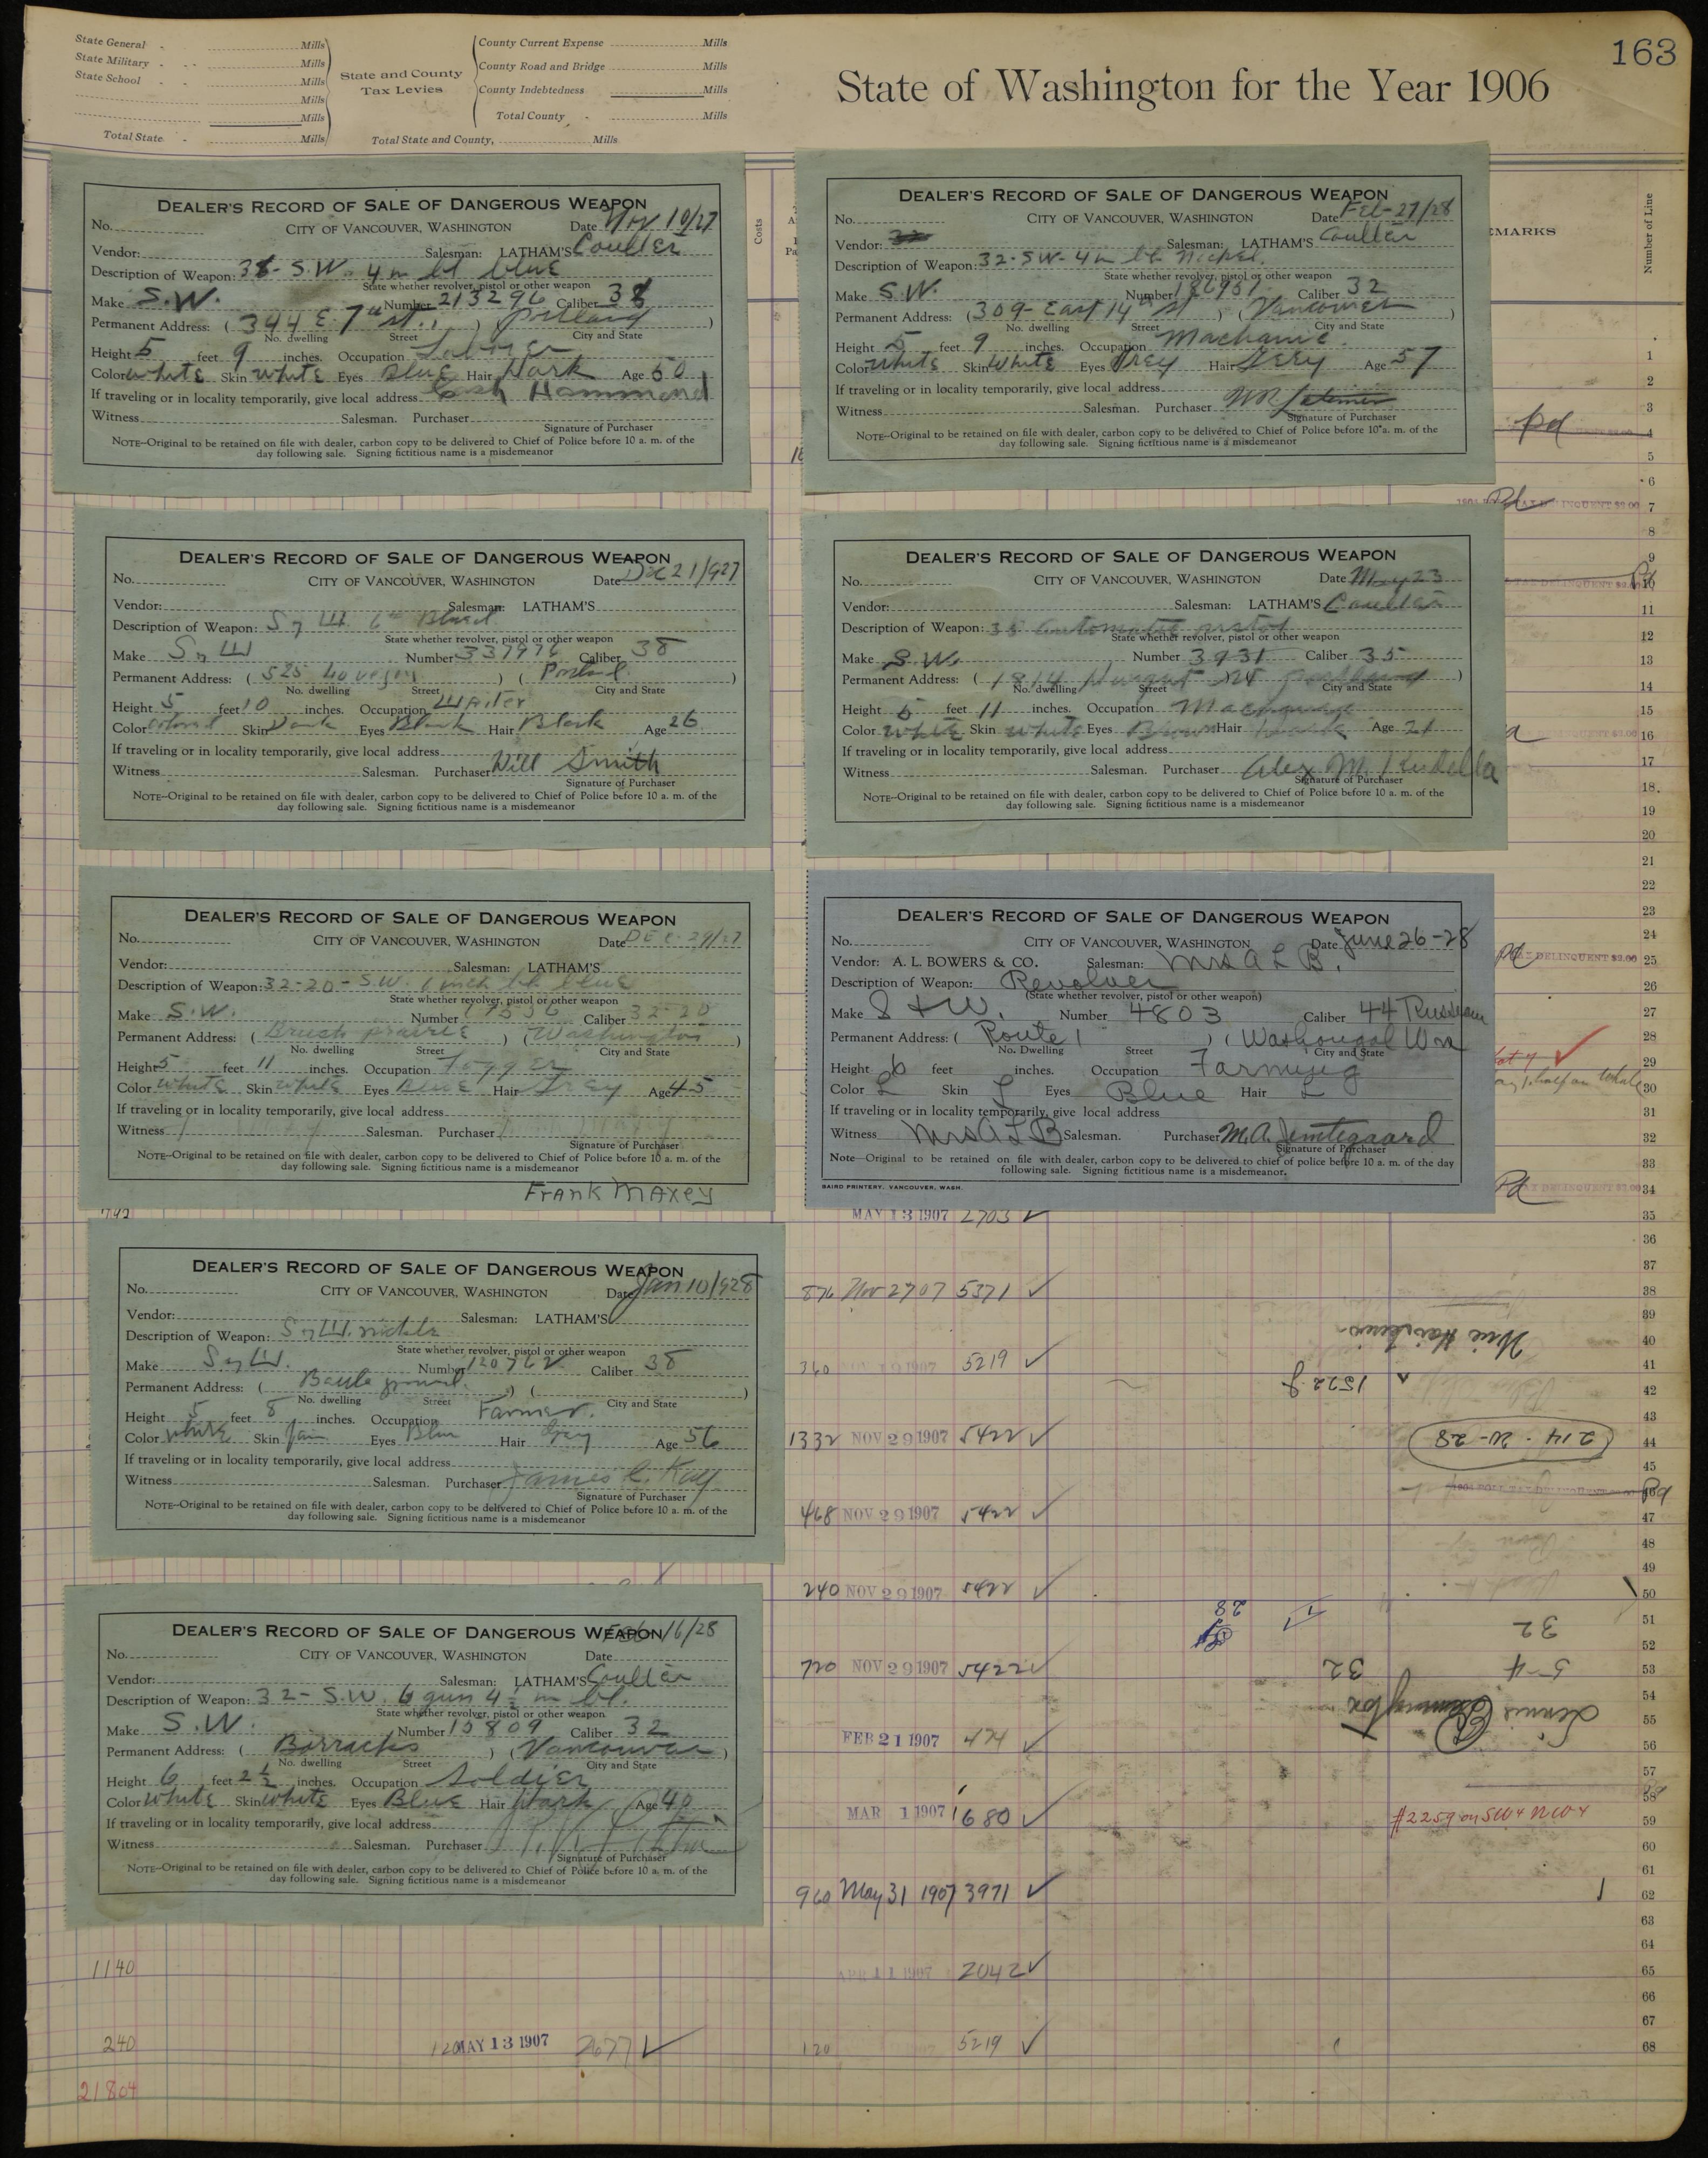 163
State of Washington for the Year 1906
State General Mills
State Military Mills
State School Mills
Mills
Mills
Total State Mills
State and County Tax Levies
County Current Expense Mills
County Road and Bridge Mills
County Indebtedness Mills
Total County Mills
Total State and County, Mills
Costs
Number of Line
DEALER'S RECORD OF SALE OF DANGEROUS WEAPON
No. CITY OF VANCOUVER, WASHINGTON Date Nov 10/27
Vendor: Salesman: LATHAM'S Coulter
Description of Weapon: 38-S.W. 4 in bl blue
State whether revolver, pistol or other weapon
Make S.W. Number 213296 Caliber 38
Permanent Address: (344 E. 7th st.,) (Portland)
No. dwelling Street City and State
Height 5 feet 9 inches. Occupation Laborer
Color white Skin white Eyes Blue Hair Dark Age 50
If traveling or in locality temporarily, give local address Hammond
Witness Salesman. Purchaser
Signature of Purchaser
NOTE--Original to be retained on file with dealer, carbon copy to be delivered to Chief of Police before 10 a. m. of the
day following sale. Signing fictitious name is a misdemeanor
DEALER'S RECORD OF SALE OF DANGEROUS WEAPON
No. CITY OF VANCOUVER, WASHINGTON Date Dec 21/927
Vendor: Salesman: LATHAM'S
Description of Weapon: S & W. 6in Blued
State whether revolver, pistol or other weapon
Make S & W Number 337976 Caliber 38
Permanent Address: (525) (Portland)
No. dwelling Street City and State
Height 5 feet 10 inches. Occupation Waiter
Color colored Skin Dark Eyes Black Hair Black Age 26
If traveling or in locality temporarily, give local address
Witness Salesman. Purchaser Will Smith
Signature of Purchaser
NOTE--Original to be retained on file with dealer, carbon copy to be delivered to Chief of Police before 10 a. m. of the
day following sale. Signing fictitious name is a misdemeanor
DEALER'S RECORD OF SALE OF DANGEROUS WEAPON
No. CITY OF VANCOUVER, WASHINGTON Date DEC-29/27
Vendor: Salesman: LATHAM'S
Description of Weapon: 32-20-S.W. inch bl blue
State whether revolver, pistol or other weapon
Make S.W. Number Caliber 32-20
Permanent Address: (Brush prairie) (Washington)
No. dwelling Street City and State
Height 5 feet 11 inches. Occupation Logger
Color white Skin white Eyes Blue Hair Grey Age 45
If traveling or in locality temporarily, give local address
Witness Salesman. Purchaser
Signature of Purchaser
NOTE--Original to be retained on file with dealer, carbon copy to be delivered to Chief of Police before 10 a. m. of the
day following sale. Signing fictitious name is a misdemeanor
Frank Maxey
DEALER'S RECORD OF SALE OF DANGEROUS WEAPON
No. CITY OF VANCOUVER, WASHINGTON Date Jan 10/928
Vendor: Salesman: LATHAM'S
Description of Weapon: S & W. nickle
State whether revolver, pistol or other weapon
Make S & W. Number 120762 Caliber 38
Permanent Address: (Battle ground) ( )
No. dwelling Street City and State
Height 5 feet 8 inches. Occupation Farmer.
Color white Skin fair Eyes Blue Hair Grey Age 56
If traveling or in locality temporarily, give local address
Witness Salesman. Purchaser James C. Kay
Signature of Purchaser
NOTE--Original to be retained on file with dealer, carbon copy to be delivered to Chief of Police before 10 a. m. of the
day following sale. Signing fictitious name is a misdemeanor
DEALER'S RECORD OF SALE OF DANGEROUS WEAPON
16/28
No. CITY OF VANCOUVER, WASHINGTON Date
Vendor: Salesman: LATHAM'S Coulter
Description of Weapon: 32-S.W. 6 gun 4½ in bl.
State whether revolver, pistol or other weapon
Make S.W. Number 15809 Caliber 32
Permanent Address: (Barracks) (Vancouver)
No. dwelling Street City and State
Height 6 feet 2½ inches. Occupation Soldier
Color white Skin white Eyes Blue Hair Dark Age 40
If traveling or in locality temporarily, give local address
Witness Salesman. Purchaser
Signature of Purchaser
NOTE--Original to be retained on file with dealer, carbon copy to be delivered to Chief of Police before 10 a. m. of the
day following sale. Signing fictitious name is a misdemeanor
1140
240 120 MAY 13 1907 2677 ✓
21804
DEALER'S RECORD OF SALE OF DANGEROUS WEAPON
No. CITY OF VANCOUVER, WASHINGTON Date Feb-27/28
Vendor: Salesman: LATHAM'S Coulter
Description of Weapon: 32-SW-4in bl Nickel.
State whether revolver, pistol or other weapon
Make S.W. Number 186951 Caliber 32
Permanent Address: (309-East 14th st) (Vancouver)
No. dwelling Street City and State
Height 5 feet 9 inches. Occupation Machanic.
Color white Skin white Eyes Grey Hair Grey Age 57
If traveling or in locality temporarily, give local address
Witness Salesman. Purchaser W.R. Latimer
Signature of Purchaser
NOTE--Original to be retained on file with dealer, carbon copy to be delivered to Chief of Police before 10 a. m. of the
day following sale. Signing fictitious name is a misdemeanor
DEALER'S RECORD OF SALE OF DANGEROUS WEAPON
No. CITY OF VANCOUVER, WASHINGTON Date May 23
Vendor: Salesman: LATHAM'S Coulter
Description of Weapon: 35 Automatic pistol
State whether revolver, pistol or other weapon
Make S.W. Number 3931 Caliber 35
Permanent Address: (1814) (Portland)
No. dwelling Street City and State
Height 5 feet 11 inches. Occupation
Color white Skin white Eyes Brown Hair Dark Age 21
If traveling or in locality temporarily, give local address
Witness Salesman. Purchaser Alex M.
Signature of Purchaser
NOTE--Original to be retained on file with dealer, carbon copy to be delivered to Chief of Police before 10 a. m. of the
day following sale. Signing fictitious name is a misdemeanor
DEALER'S RECORD OF SALE OF DANGEROUS WEAPON
No. CITY OF VANCOUVER, WASHINGTON Date June 26-28
Vendor: A. L. BOWERS & CO. Salesman: Mrs A L B.
Description of Weapon: Revolver
(State whether revolver, pistol or other weapon)
Make S & W. Number 4803 Caliber 44 Russian
Permanent Address: (Route 1) (Washougal Wn
No. Dwelling Street City and State
Height 6 feet inches. Occupation Farming
Color L Skin L Eyes Blue Hair L
If traveling or in locality temporarily, give local address
Witness Mrs A L B Salesman. Purchaser M.A. Jemtegaard
Signature of Purchaser
Note--Original to be retained on file with dealer, carbon copy to be delivered to chief of police before 10 a. m. of the day
following sale. Signing fictitious name is a misdemeanor.
BAIRD PRINTERY, VANCOUVER, WASH.
MAY 13 1907 2703 ✓
876 Nov 2707 5371 ✓
360 NOV 19 1907 5219 ✓
1332 NOV 29 1907 5422 ✓
468 NOV 29 1907 5422 ✓
240 NOV 29 1907 5422 ✓
720 NOV 29 1907 5422 ✓
FEB 21 1907 474 ✓
MAR 1 1907 1680 ✓
960 May 31 1907 3971 ✓
APR 11 1907 2042 ✓
120 5219 ✓
EMARKS
pd
Pd
Pd
Pd
Pd
Pd
1522 J
214-W-28
28
32
32
5-4
#2259 on SW4 NW4
1
2
3
4
5
6
7
8
9
10
11
12
13
14
15
16
17
18
19
20
21
22
23
24
25
26
27
28
29
30
31
32
33
34
35
36
37
38
39
40
41
42
43
44
45
46
47
48
49
50
51
52
53
54
55
56
57
58
59
60
61
62
63
64
65
66
67
68